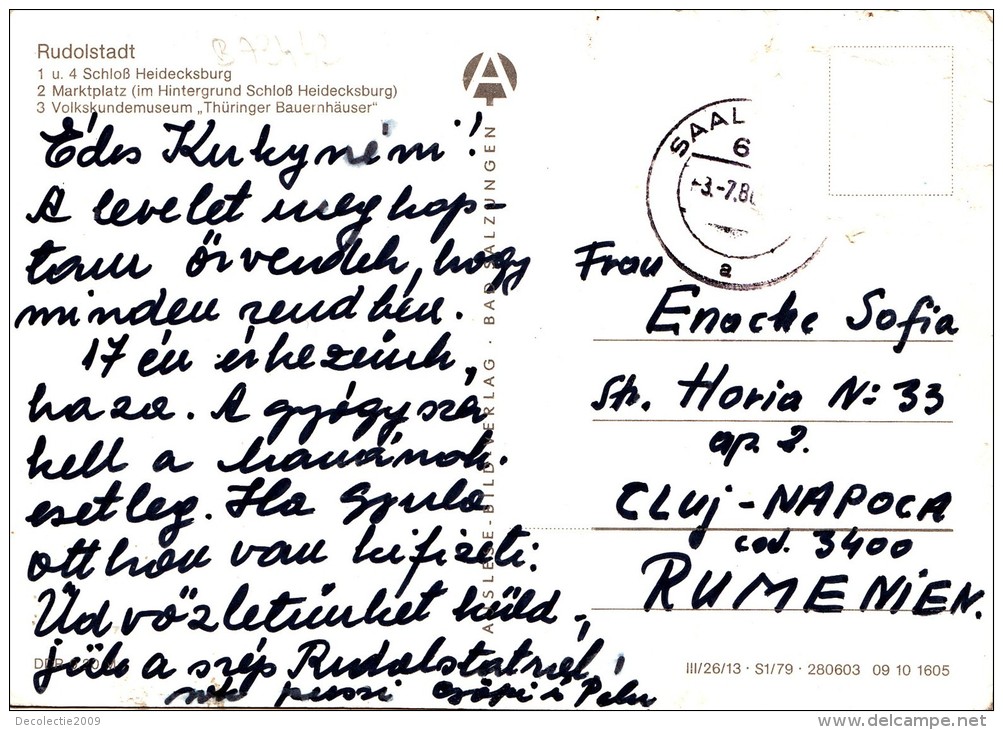 Rudolstadt
1 u. 4 Schloß Heidecksburg
2 Marktplatz (im Hintergrund Schloß Heidecksburg)
3 Volkskundemuseum „Thüringer Bauernhäuser"
Édes Kukynéni!
A levelet meg kap-
tam örvendek, hogy
minden rendben.
17 én érkezünk,
haza. A gyógyszer
kell a
esetleg. Ha Gyula
otthon van kifizeti.
Üdvözletünket küld-
jük a szép Rudolstatról,
sok puszi Csöpi
AUSLESE-BILD-VERLAG · BAD SALZUNGEN
SAAL
6
-3.-7.80
a
Frau
Enache Sofia
Str. Horia N: 33
ap 2.
CLUJ-NAPOCA
cod. 3400
RUMENIEN.
III/26/13 · S1/79 · 280603 09 10 1605
Decolectie2009
www.delcampe.net